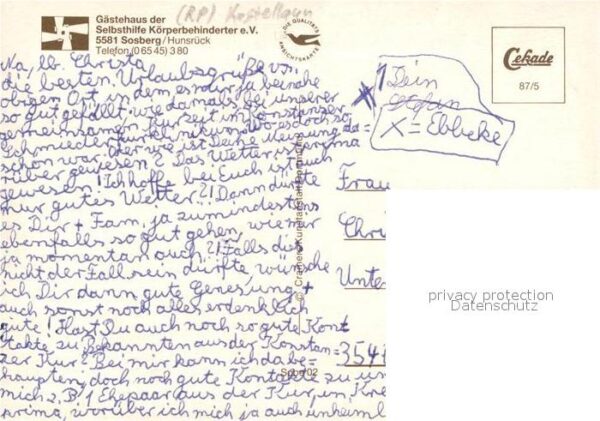 (RP) Kastellaun
Gästehaus der
Selbsthilfe Körperbehinderter e.V.
5581 Sosberg/Hunsrück
Telefon (0 65 45) 3 80
DIE QUALITÄTS
ANSICHTSKARTE
Cekade
87/5
Na, lb. Christa,
die besten Urlaubsgrüße von
obigen Ort, in dem es mir ja beinahe
so gut gefällt, wie damals bei unserer
gemeinsamen Kurzeit im Konstanzer
Schmieder-Klinikum, wo es doch so
schön war. Oder wie ist Deine Meinung da=
rüber gewesen? Das Wetter ist prima
gewesen! Ich hoffe, bei Euch ist auch
nur gutes Wetter?! Dann dürfte
es Dir + Fam. ja zumindestens
ebenfalls so gut gehen, wie mir
ja momentan auch?! Falls dies
nicht der Fall sein dürfte, wünsche
ich Dir dann gute Genesung +
auch sonst noch alles erdenklich
gute! Hast Du auch noch so gute Kont
takte zu Bekannten aus der Konstan=
zer Kur? Bei mir kann ich da be=
haupten, doch noch gute Kontakte zu
mich z. B. 1 Ehepaar aus der Kur, in
prima, worüber ich mich ja auch unheiml
Dein
Stefan
X = Ebbeke
Frau
Chri
Unter
3541
© Cramers Kunstanstalt Dortmund
Sobg 02
privacy protection
Datenschutz